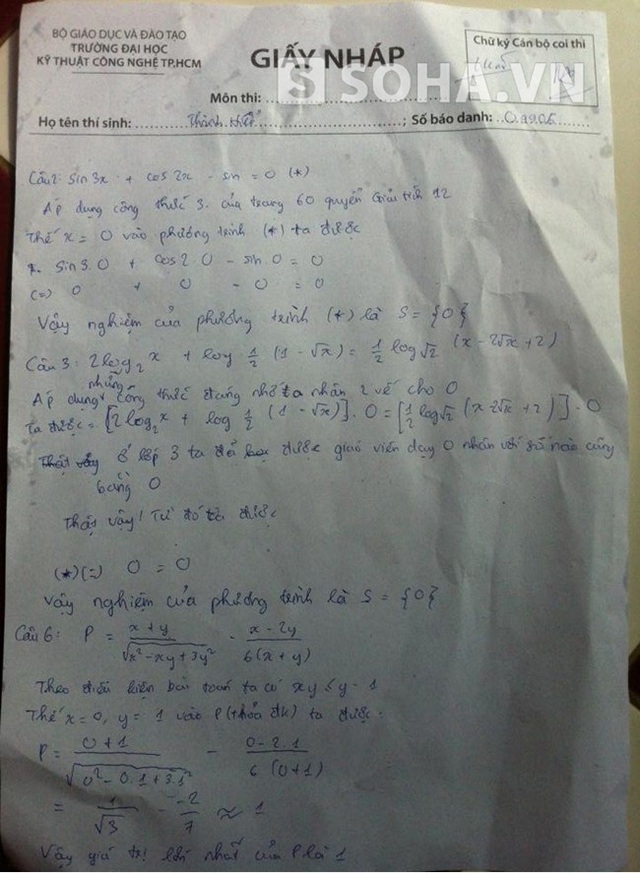 BỘ GIÁO DỤC VÀ ĐÀO TẠO
TRƯỜNG ĐẠI HỌC
KỸ THUẬT CÔNG NGHỆ TP.HCM
GIẤY NHÁP
Chữ ký Cán bộ coi thi
SOHA.VN
Môn thi:
Họ tên thí sinh: Thành ; Số báo danh:
Câu 2: sin 3x + cos 2x - sin = 0 (*)
Áp dụng công thức 3. của trang 60 quyển Giải tích 12
Thế x = 0 vào phương trình (*) ta được
sin 3.0 + cos 2.0 - sin.0 = 0
(=) 0 + 0 - 0 = 0
Vậy nghiệm của phương trình (*) là S = {0}
Câu 3: 2log₂x + log 1/2 (1 - √x) = 1/2 log√2 (x - 2√x + 2)
Áp dụng những công thức đáng nhớ ta nhân 2 vế cho 0
Ta được = [2log₂x + log 1/2 (1 - √x)] . 0 = [1/2 log√2 (x 2√x + 2)] . 0
Thật vậy ở lớp 3 ta đã học được giáo viên dạy 0 nhân với số nào cũng
bằng 0
Thật vậy! Từ đó ta được
(*) (=) 0 = 0
Vậy nghiệm của phương trình là S = {0}
Câu 6: P = (x + y)/√(x² - xy + 3y²) - (x - 2y)/6(x + y)
Theo điều kiện bài toán ta có xy ≤ y - 1
Thế x = 0, y = 1 vào P (thỏa đk) ta được:
P = (0 + 1)/√(0² - 0.1 + 3.1²) - (0 - 2.1)/6(0 + 1)
= 1/√3 - -2/7 ≈ 1
Vậy giá trị lớn nhất của P là 1